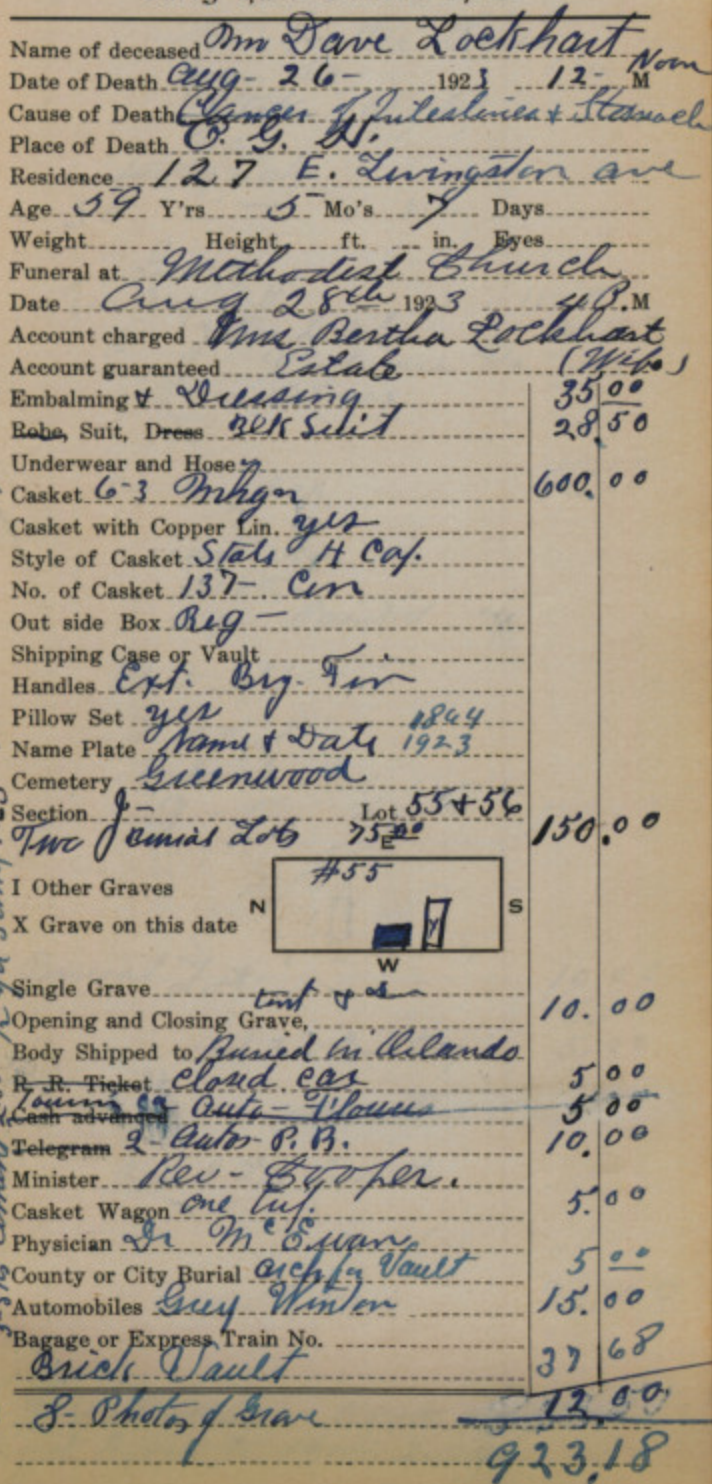 Name of deceased Mr Dave Lockhart
Date of Death Aug- 26- 1923 12- Noon M
Cause of Death Cancer of Intestines & Stomach
Place of Death O. G. H.
Residence 127 E. Livingston ave
Age 59 Y'rs 5 Mo's 7 Days
Weight Height ft. in. Eyes
Funeral at Methodist Church
Date Aug 28th 1923 4 P.M
Account charged Mrs Bertha Lockhart
Account guaranteed Estate (Wife)
Embalming & Dressing 35 00
Robe, Suit, Dress Blk Suit 28.50
Underwear and Hose
Casket 6-3 Mhgn 600.00
Casket with Copper Lin. yes
Style of Casket State H Cap.
No. of Casket 137- Cin
Out side Box Reg -
Shipping Case or Vault
Handles Ext. Brg.
Pillow Set yes 1864
Name Plate Name & Date 1923
Cemetery Greenwood
Section J- Lot 55 & 56
Two Burial Lots 75.00 150.00
E
#55
I Other Graves
N S
X Grave on this date
W
Single Grave
tent &
Opening and Closing Grave, 10.00
Body Shipped to Buried in Orlando
R. R. Ticket closed car 5 00
Touring
Cash advanced Auto- Flowers 5 00
Telegram 2 Autos P. B. 10.00
Minister Rev- Cooper.
Casket Wagon one 5.00
Physician Dr McEwan
County or City Burial arch for Vault 5 00
Automobiles Grey Winton 15.00
Bagage or Express Train No.
Brick Vault 37 68
8- Photos of Grave 12.00
923.18